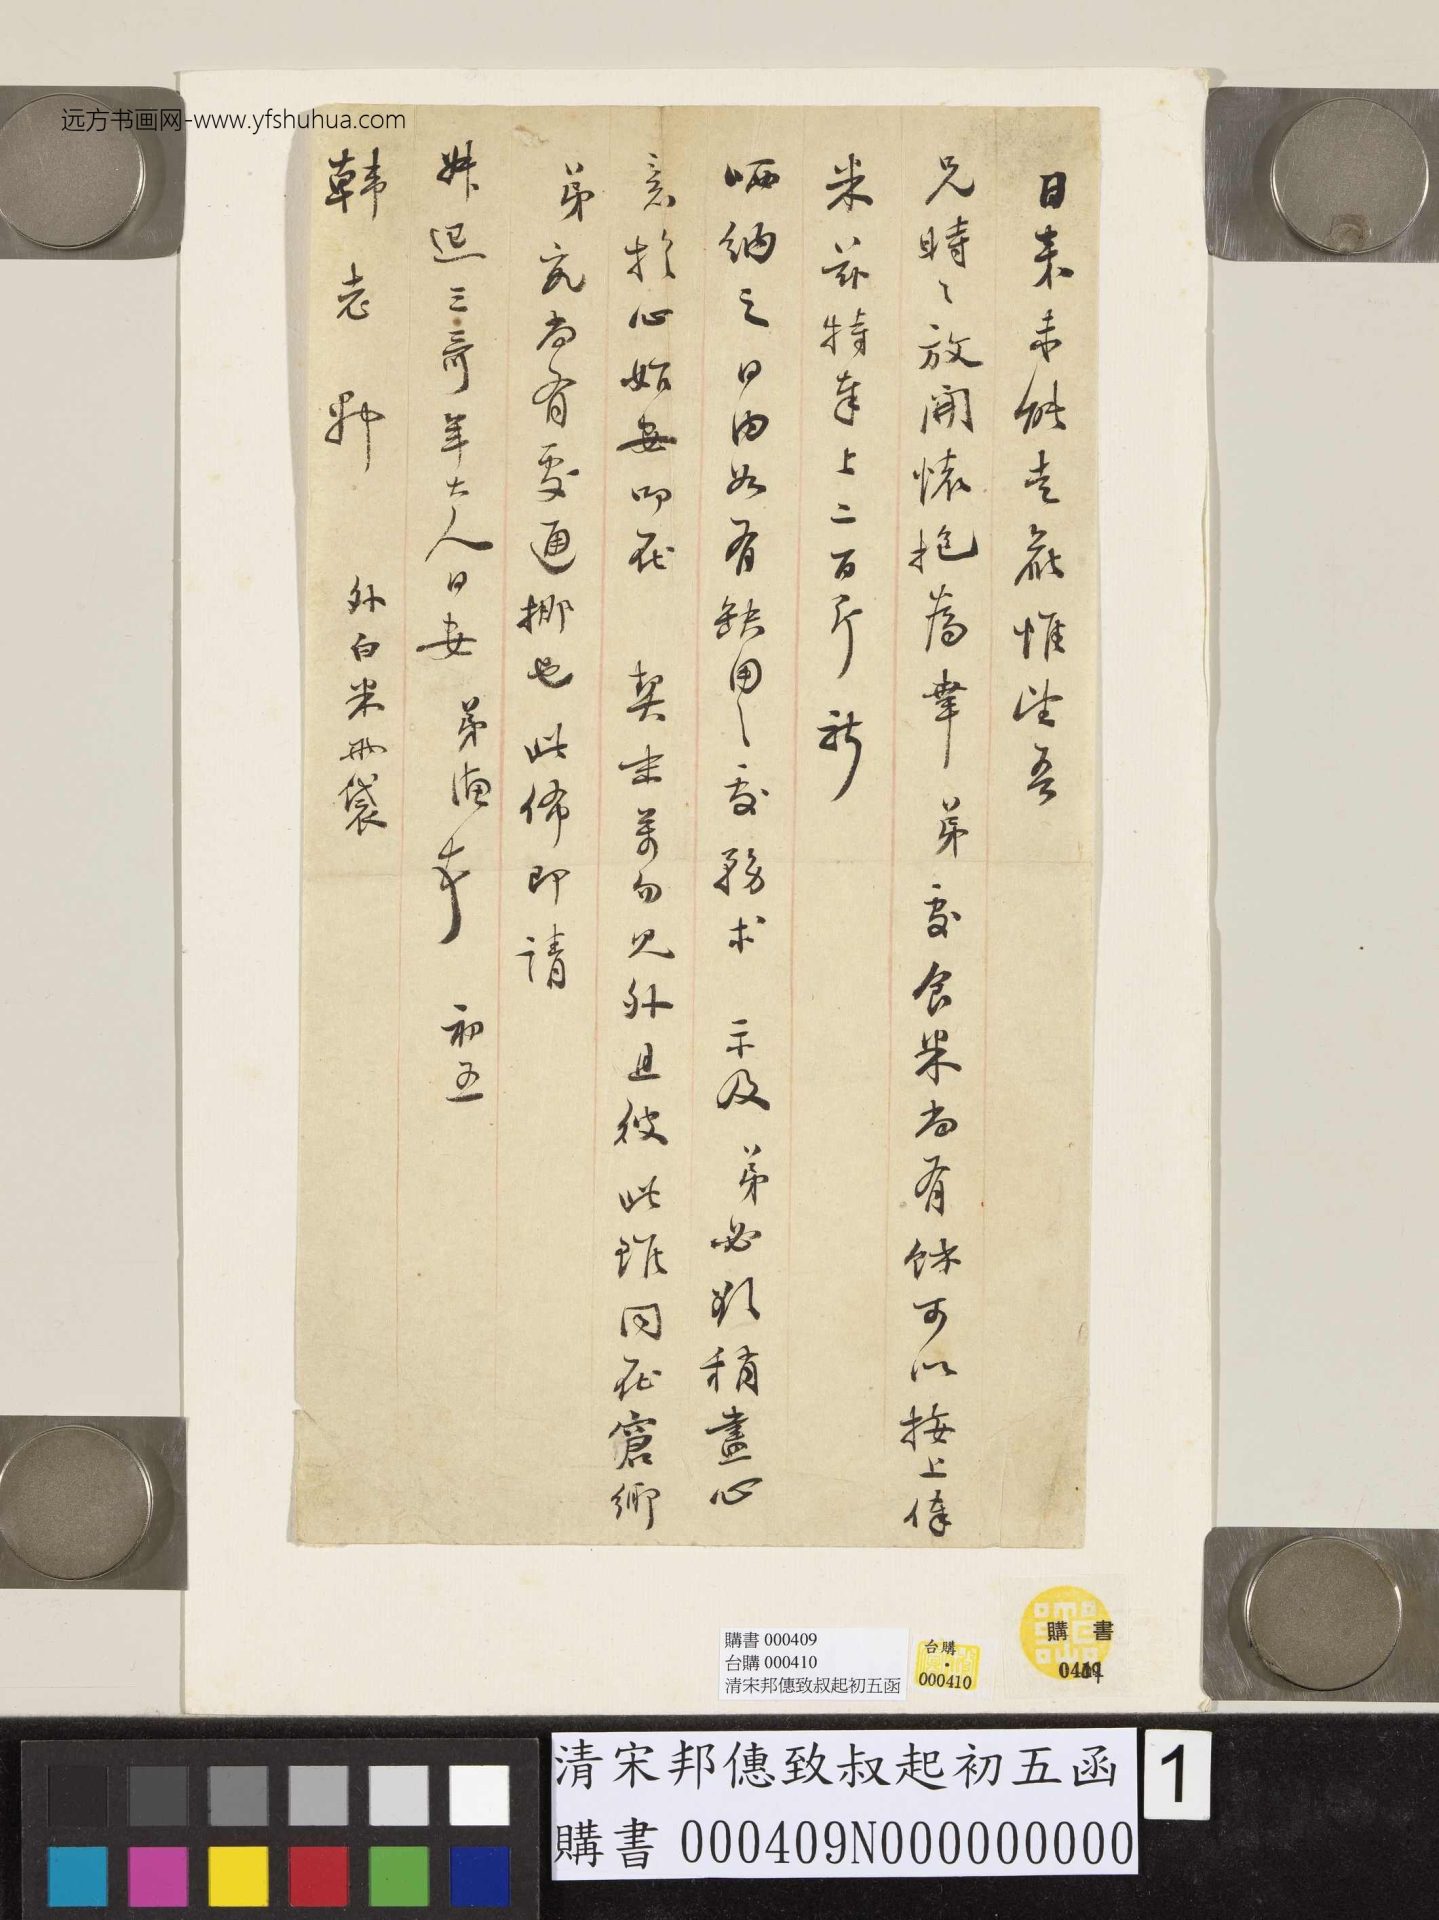 远方书画网-www.yfshuhua.com
日來未能走 惟望吾
兄時々放開懷抱為幸 弟處食米尚有餘可以接上俸
米茲特奉上二百斤祈
哂納之日內如有缺用之處務求 示及 弟必欵稍盡心
意於心始安叩在 契末萬勿見外且彼此雖同在窘鄉
弟處尚有處通挪也此佈即請
叔起三哥年大人日安 弟 初五
韓老 外白米兩袋
購書 000409
台購 000410
清宋邦僡致叔起初五函
台購
000410
購 書
清宋邦僡致叔起初五函
購書 000409N000000000
1